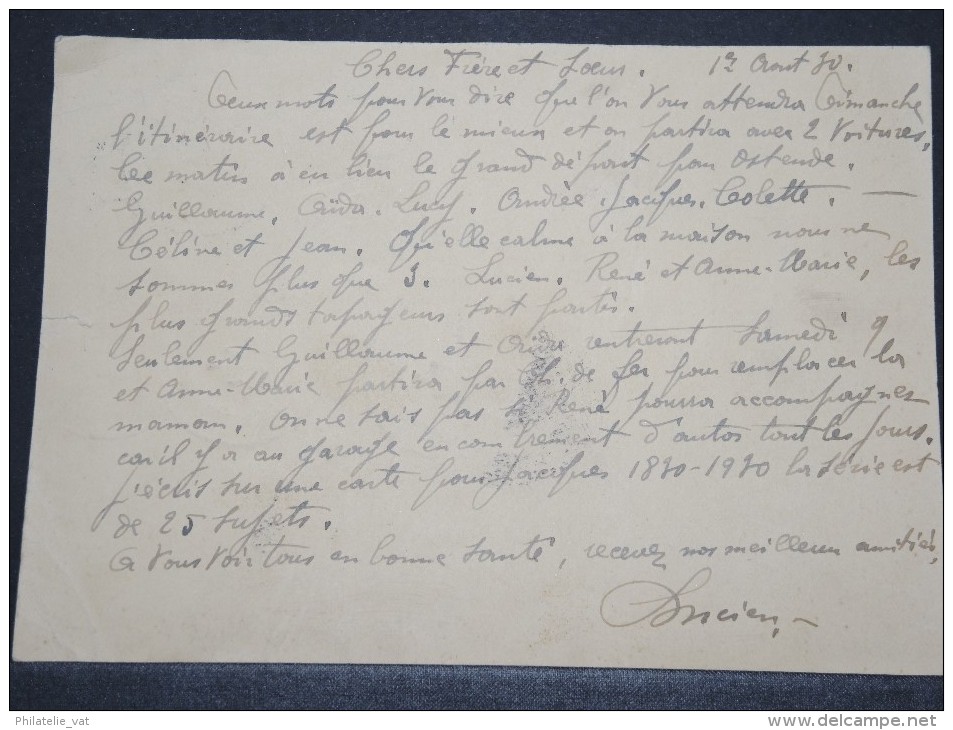 Chers Frère et Soeur. 12 Aout 30.
Deux mots pour vous dire que l'on vous attendra Dimanche
l'itinéraire est pour le mieux et on partira avec 2 voitures,
Ce matin à eu lieu le grand départ pour Ostende.
Guillaume. Aïda. Lucy. Andrée. Jacques. Colette. —
Céline et Jean. Qu'elle calme à la maison nous ne
sommes plus que 3. Lucien. René et Anne-Marie, les
plus grands tapageurs sont partis.
Seulement Guillaume et Aïda rentreront Samedi 9
et Anne-Marie partira par Ch. de fer pour remplacer la
maman. On ne sais pas si René pourra accompagner
car il y a au garage encombrement d'autos tout les jours.
J'écris sur une carte pour Jacques 1830-1930 la série est
de 25 sujets.
A vous voir tous en bonne santé, recevez nos meilleurs amitiés,
Lucien,-
Philatelie_vat
http://www.delcampe.net